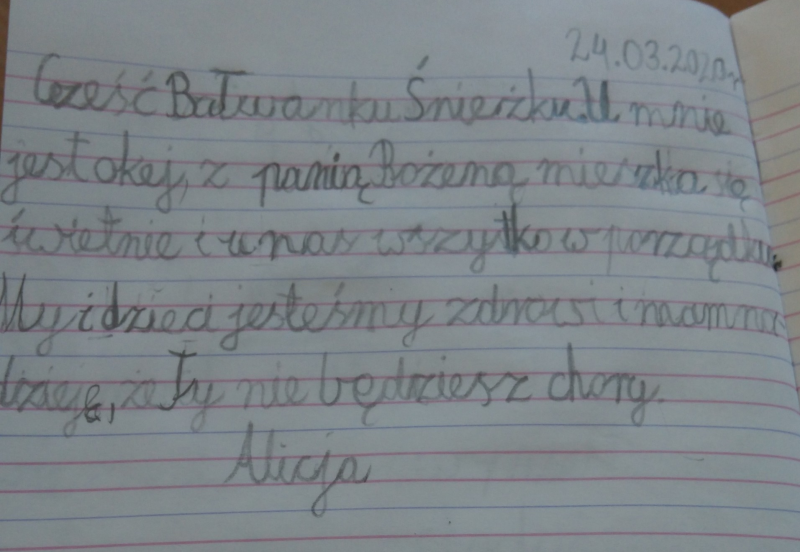 24.03.2020r
Cześć Bałwanku Śnieżku. U mnie
jest okej, z panią Bożeną mieszka się
świetnie i u nas wszytko w porządku.
My i dzieci jesteśmy zdrowi i mam na-
dzieję, że Ty nie będziesz chory.
Alicja